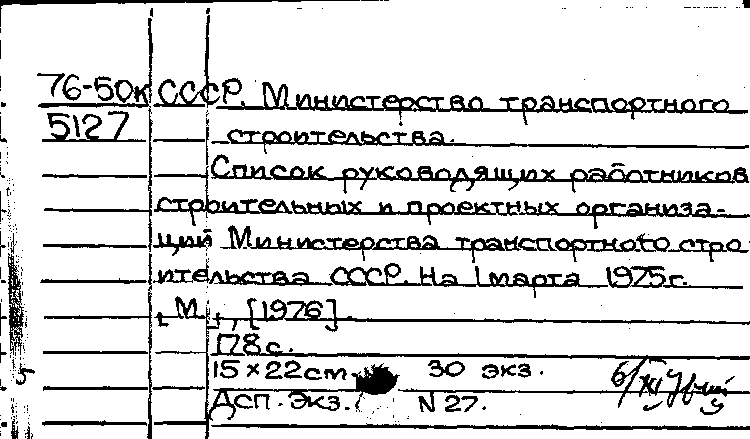 76-50к СССР. Министерство транспортного
5127 строительства.
Список руководящих работников
строительных и проектных организа-
ций Министерства транспортного стро
ительства СССР. На 1 марта 1975г.
М., [1976].
178 с.
15×22 см. 30 экз.
Дсп. Экз. N 27.